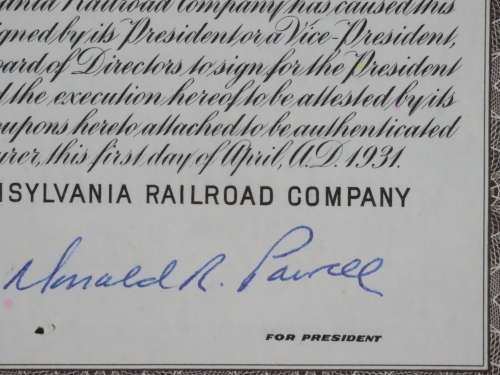 ania Railroad Company has caused this
igned by its President or a Vice-President,
oard of Directors to sign for the President
d the execution hereof to be attested by its
oupons hereto attached to be authenticated
urer, this first day of April, A.D. 1931.
NSYLVANIA RAILROAD COMPANY
Donald R. Powell
FOR PRESIDENT